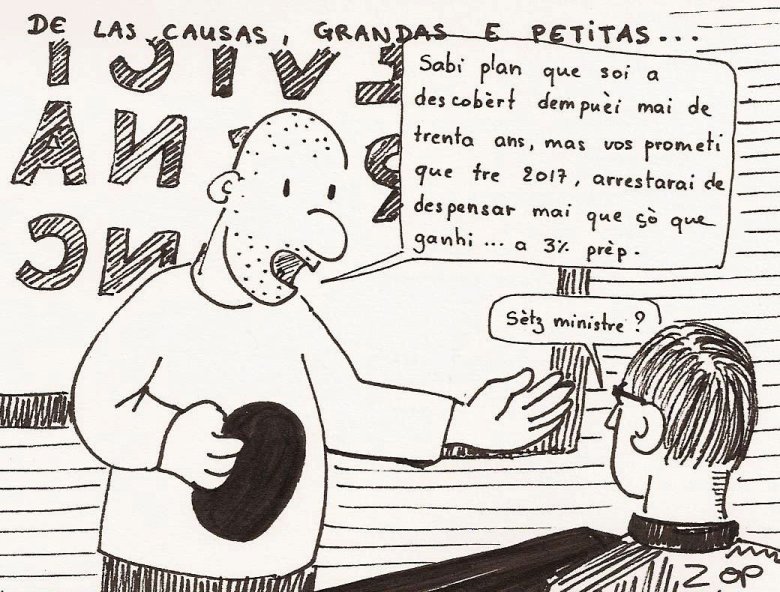 DE LAS CAUSAS, GRANDAS E PETITAS...
Sabi plan que soi a
descobèrt dempuèi mai de
trenta ans, mas vos prometi
que tre 2017, arrestarai de
despensar mai que çò que
ganhi... a 3% prèp.
Sètz ministre ?
ZOP